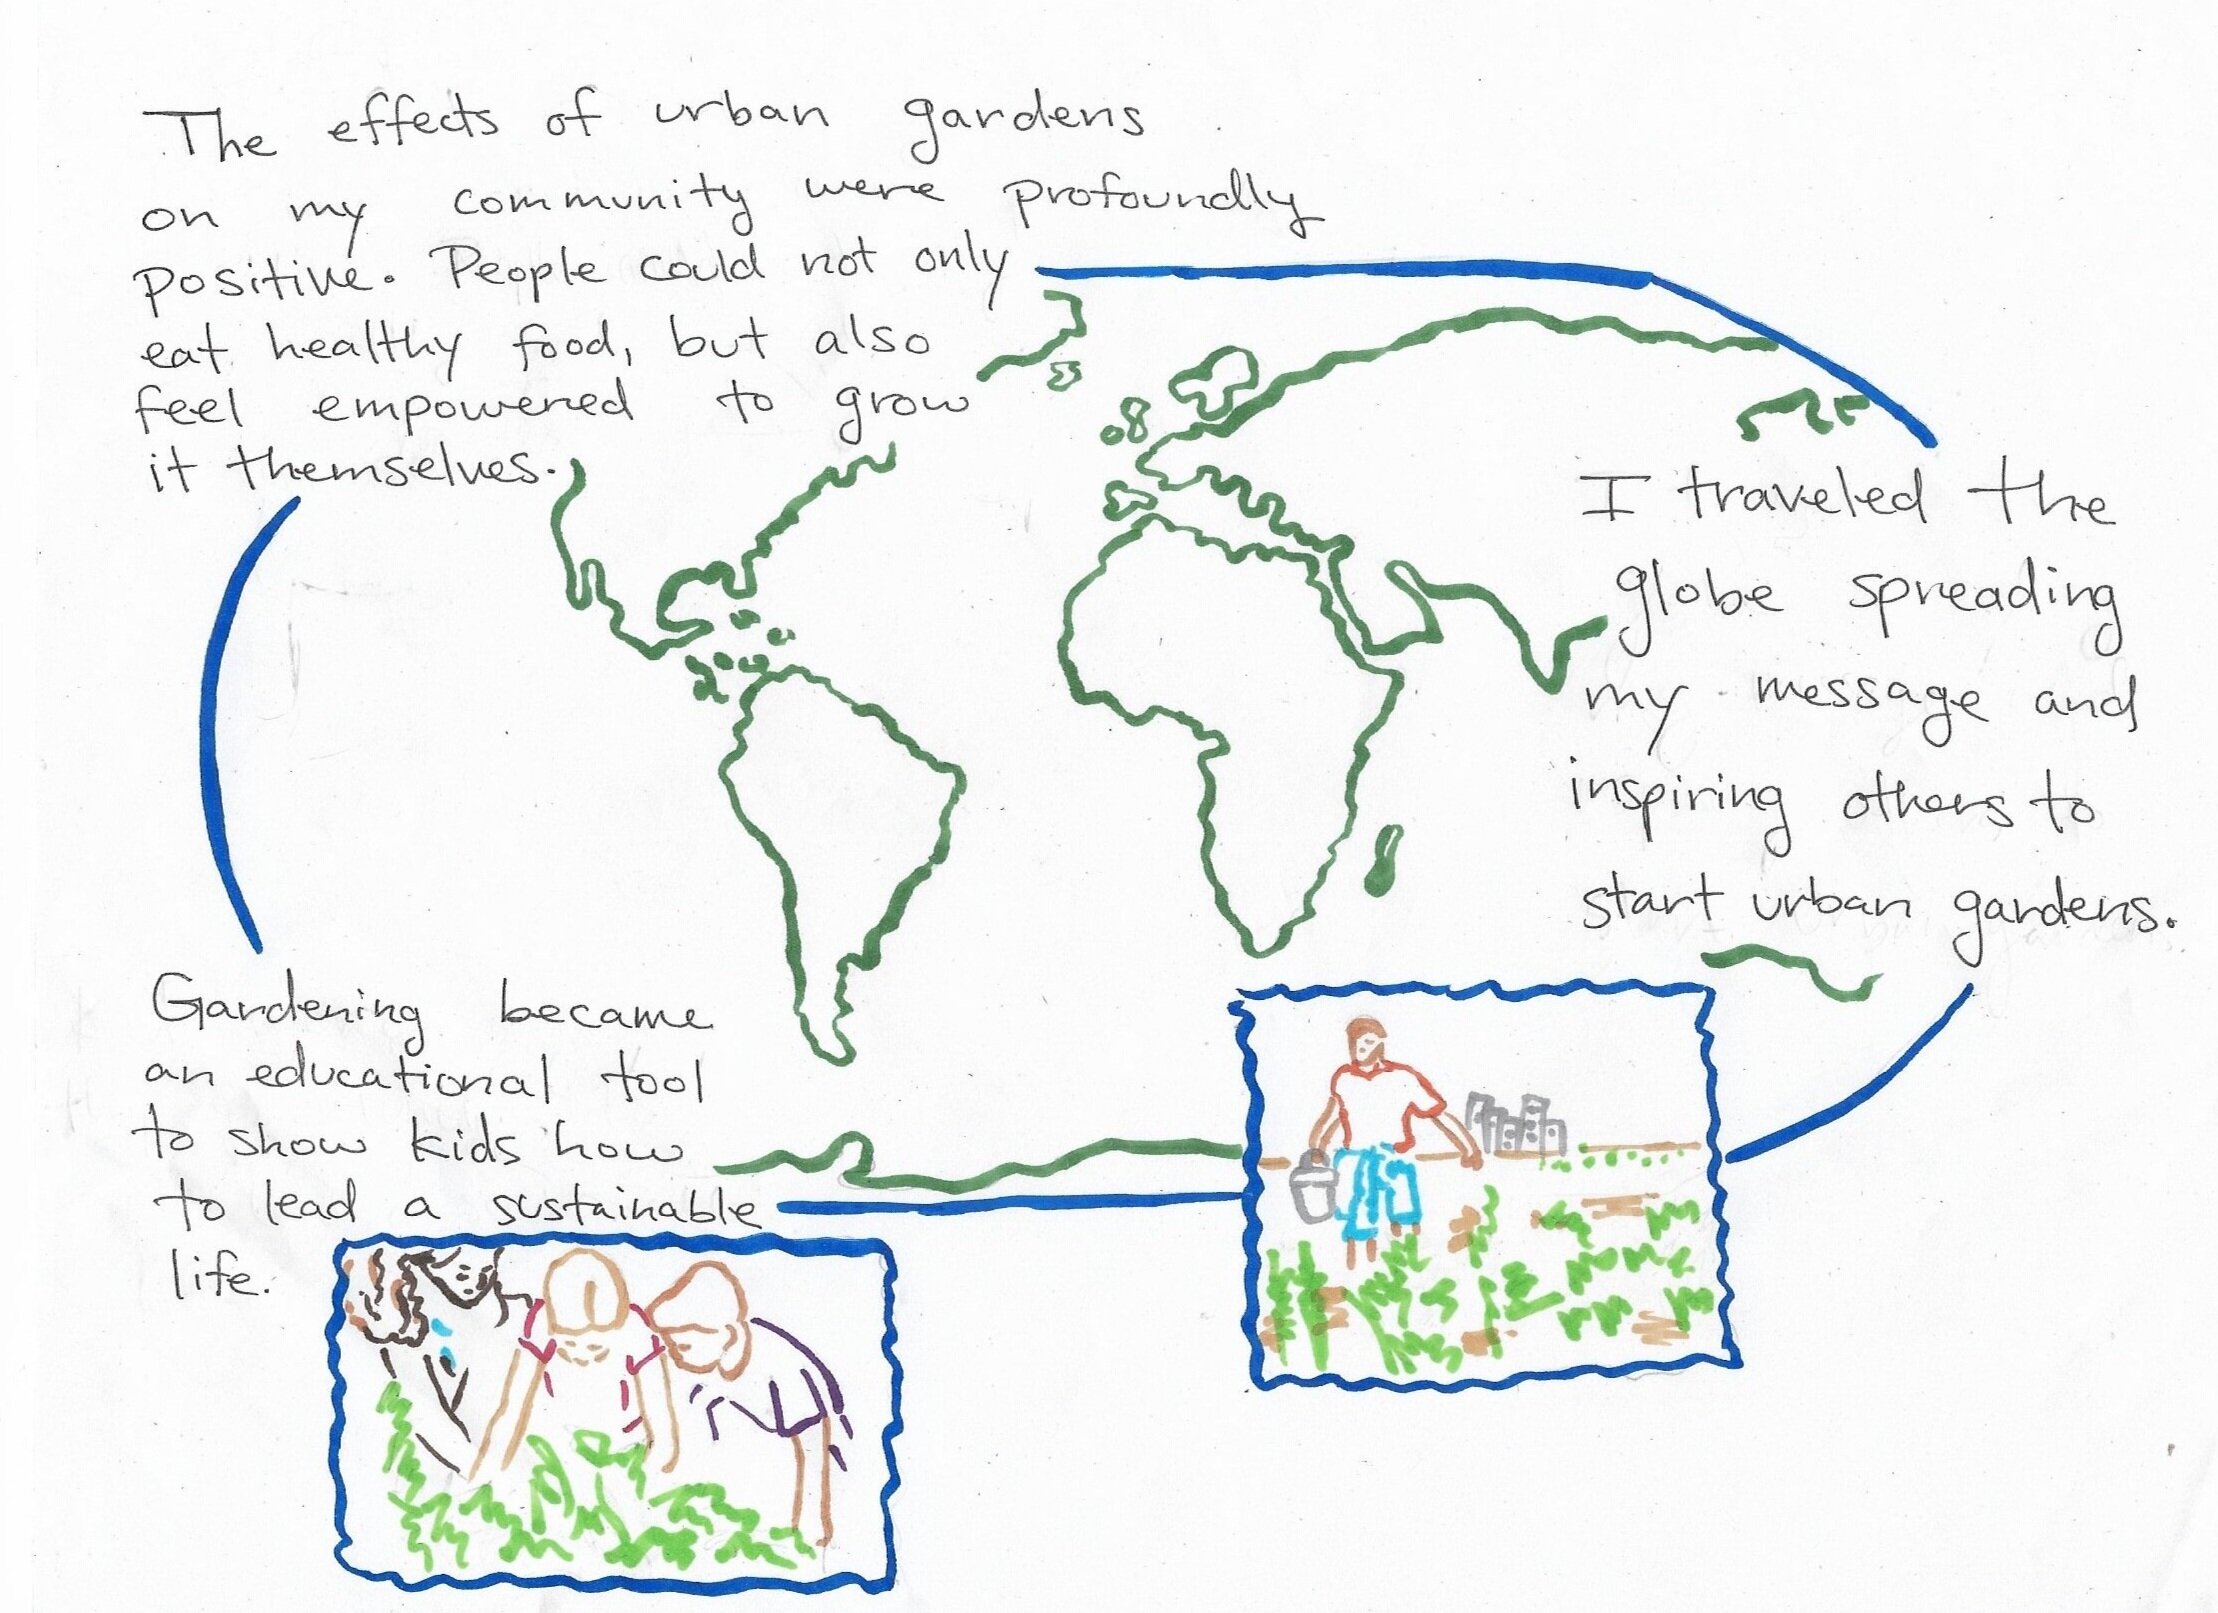 The effects of urban gardens
on my community were profoundly
positive. People could not only
eat healthy food, but also
feel empowered to grow
it themselves.
I traveled the
globe spreading
my message and
inspiring others to
start urban gardens.
Gardening became
an educational tool
to show kids how
to lead a sustainable
life.